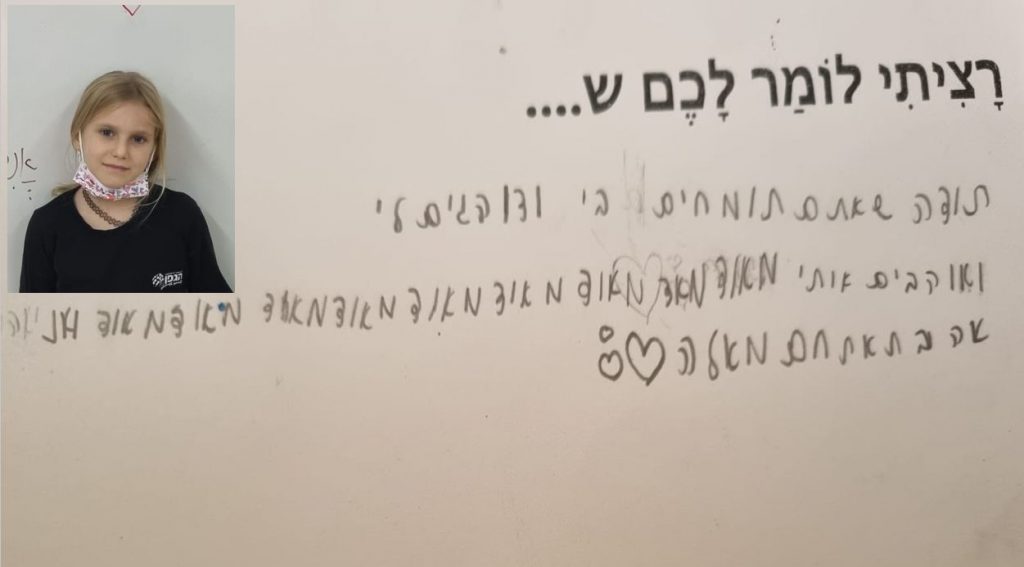 רָצִיתִי לוֹמַר לָכֶם ש....
תודה שאתם תומחים בי ודוהגים לי
ואוהבים אותי מאוד מאד מאוד מאוד מאוד מאוד מאוד מאוד מאוד ואני
מאלה
אֲנִי
הגפן